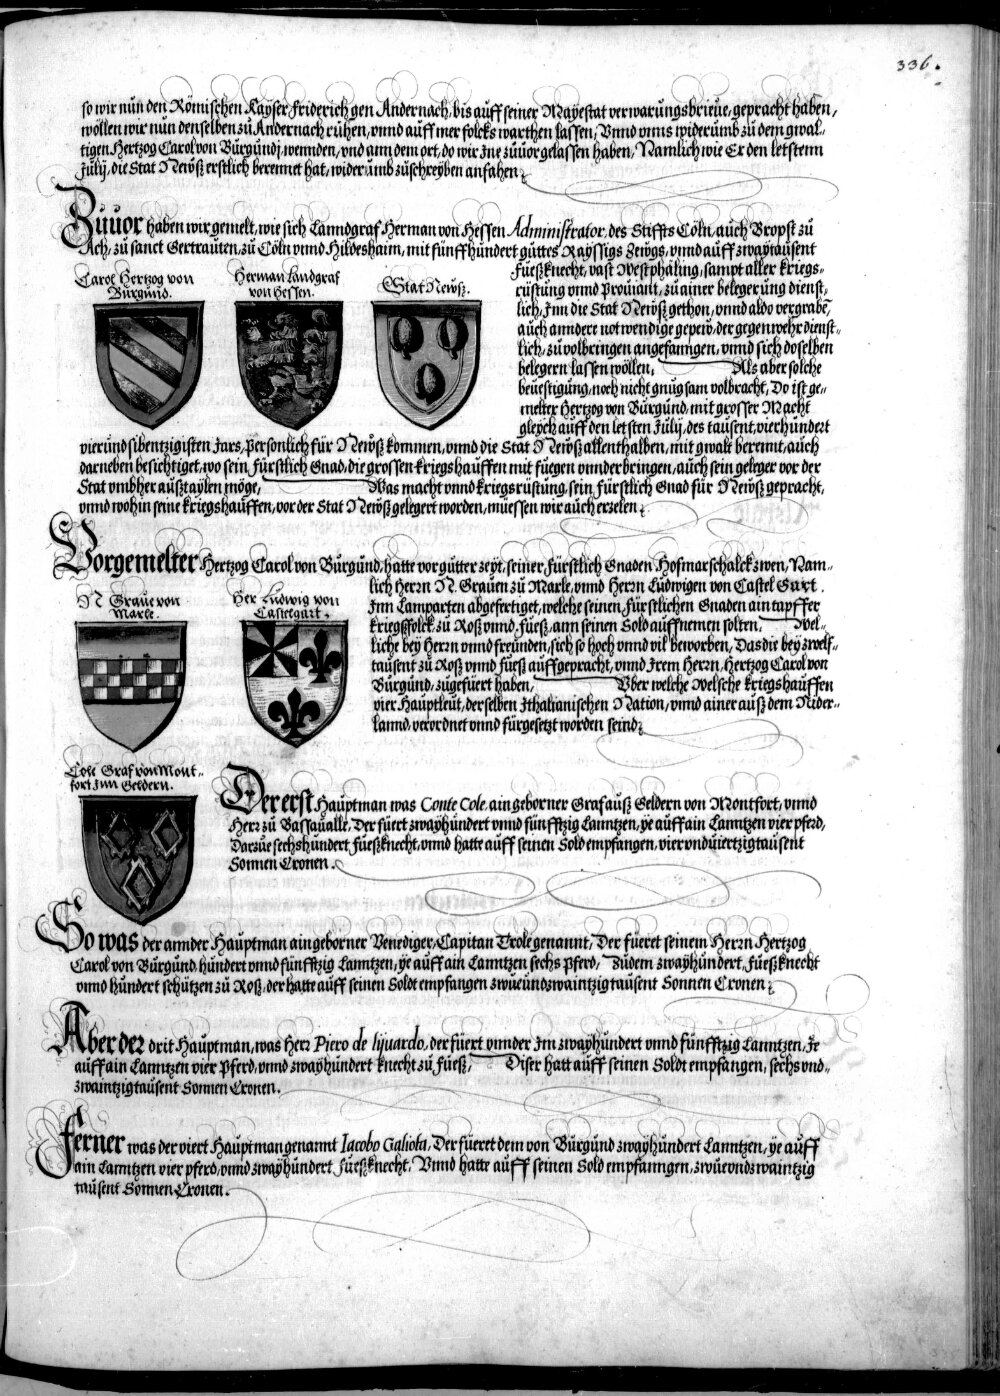 336.
so wir nun den Römischen Kayser Friderich gen Andernach, bis auff seiner Mayestat verwarungsbrieue, gepracht haben,
wöllen wir nun denselben zu Andernach rühen, vnnd auff mer folcks warthen lassen, Vnnd vnns widerumb zu dem gwal-
tigen Hertzog Carol von Bürgündj wennden, vnd ann dem ort, do wir Jne züuor gelassen haben, Namlich wie Er den letstenn
Julij, die Stat Neẅß erstlich berennet hat, widerumb züschreyben anfahen.
Züuor haben wir gemelt, wie sich Lanndgraf Herman von Hessen Administrator, des Stiffts Cöln, auch Bropst zü
Ach, zu sanct Gertrauten, zu Cöln vnnd Hildeshaim, mit fünffhündert güttes Rayssigs Zewgs, vnnd auff zwaytausent
Carol Hertzog von
Bürgünd.
Herman Landgraf
von Hessen.
Stat Neẅß.
füeßknecht, vast Westphaling, sampt aller kriegs-
rüstung vnnd Prouiant, zu ainer belegerüng dienst-
lich, Jnn die Stat Neẅß gethon, vnnd aldo vergrabē,
auch anndere notwendige gepew, der gegenwehr dienst-
lich, zu volbringen angefanngen, vnnd sich doselben
belegern lassen wöllen, Als aber solche
beuestigung, noch nicht gnugsam volbracht, Do ist ge-
melter Hertzog von Bürgünd, mit grosser Macht
gleych auff den letsten Julij, des tausent, vierhündert
vierundsibentzigisten Jars, Personlich für Neẅß kommen, vnnd die Stat Neẅß allenthalben, mit gwalt berennt, auch
darneben besichtiget, wo sein Fürstlich Gnad, die grossen kriegshauffen mit füegen vnnderbringen, auch sein geleger vor der
Stat vmbher außtaylen möge, Was macht vnnd kriegsrüstung, sein Fürstlich Gnad für Neẅß gepracht,
vnnd wohin seine kriegshauffen, vor der Stat Neẅß gelegert worden, müessen wir auch erzelen.
Vorgemelter Hertzog Carol von Bürgünd, hatte vor gütter zeyt, seiner Fürstlich Gnaden Hofmarschalck zwen, Nam-
N Graue von
Marle.
Her Ludwig von
Castelgart.
lich Herrn N. Grauen zu Marle, vnnd Herrn Ludwigen von Castel Gart.
Jnn Lamparten abgefertiget, welche seinen Fürstlichen Gnaden ain tapffer
kriegsfolck zu Roß vnnd Füeß, ann seinen Sold auffnemen solten, Wel-
liche bey Herrn vnnd freünden, sich so hoch vnnd vil beworben, Das die bey zwelf-
tausent zu Roß vnnd füeß auffgepracht, vnnd Jrem Herrn, Hertzog Carol von
Bürgünd, zugefüert haben, Vber welche Welsche kriegshauffen
vier Hauptleut, derselben Jthalianischen Nation, vnnd ainer auß dem Nider-
lannd, verordnet vnnd fürgesetzt worden seind.
Cole Graf von Mont-
fort Jnn Geldern.
Der erst Haüptman was Conte Cole, ain geborner Graf auß Geldern von Montfort, vnnd
Herr zü Bassaualle, Der füert zwayhündert vnnd fünfftzig Lanntzen, ye auff ain Lanntzen vier pferd,
Darzue sechshündert Füeßknecht, vnnd hatte auff seinen Sold empfangen, vierundviertzigtausent
Sonnen Cronen.
So was der annder Haüptman ain geborner Venediger, Capitan Trole genannt, Der füeret seinem Herrn Hertzog
Carol von Bürgünd, hündert vnnd fünfftzig Lanntzen, ye auff ain Lanntzen sechs Pferd, Zudem zwayhündert, Füeßknecht
vnnd hündert schützen zü Roß, der hatte auff seinen Soldt empfangen zwüeundzwaintzigtausent Sonnen Cronen.
Aber der drit Haüptman, was Herr Piero de lijuardo, der füert vnnder Jm zwayhündert vnnd fünfftzig Lanntzen, Je
auff ain Lanntzen vier Pferd, vnnd zwayhündert knecht zü Füeß, Diser hatt auff seinen Soldt empfangen, sechs vnd-
zwaintzigtausent Sonnen Cronen.
Ferner was der viert Haüptman genannt Jacobo Galiota, Der füeret dem von Bürgünd zwayhündert Lanntzen, ye auff
ain Lanntzen vier pferd, vnnd zwayhündert, Füeßknecht, Vnnd hatte auff seinen Sold empfanngen, zwüevndzwaintzig
tausent Sonnen Cronen.